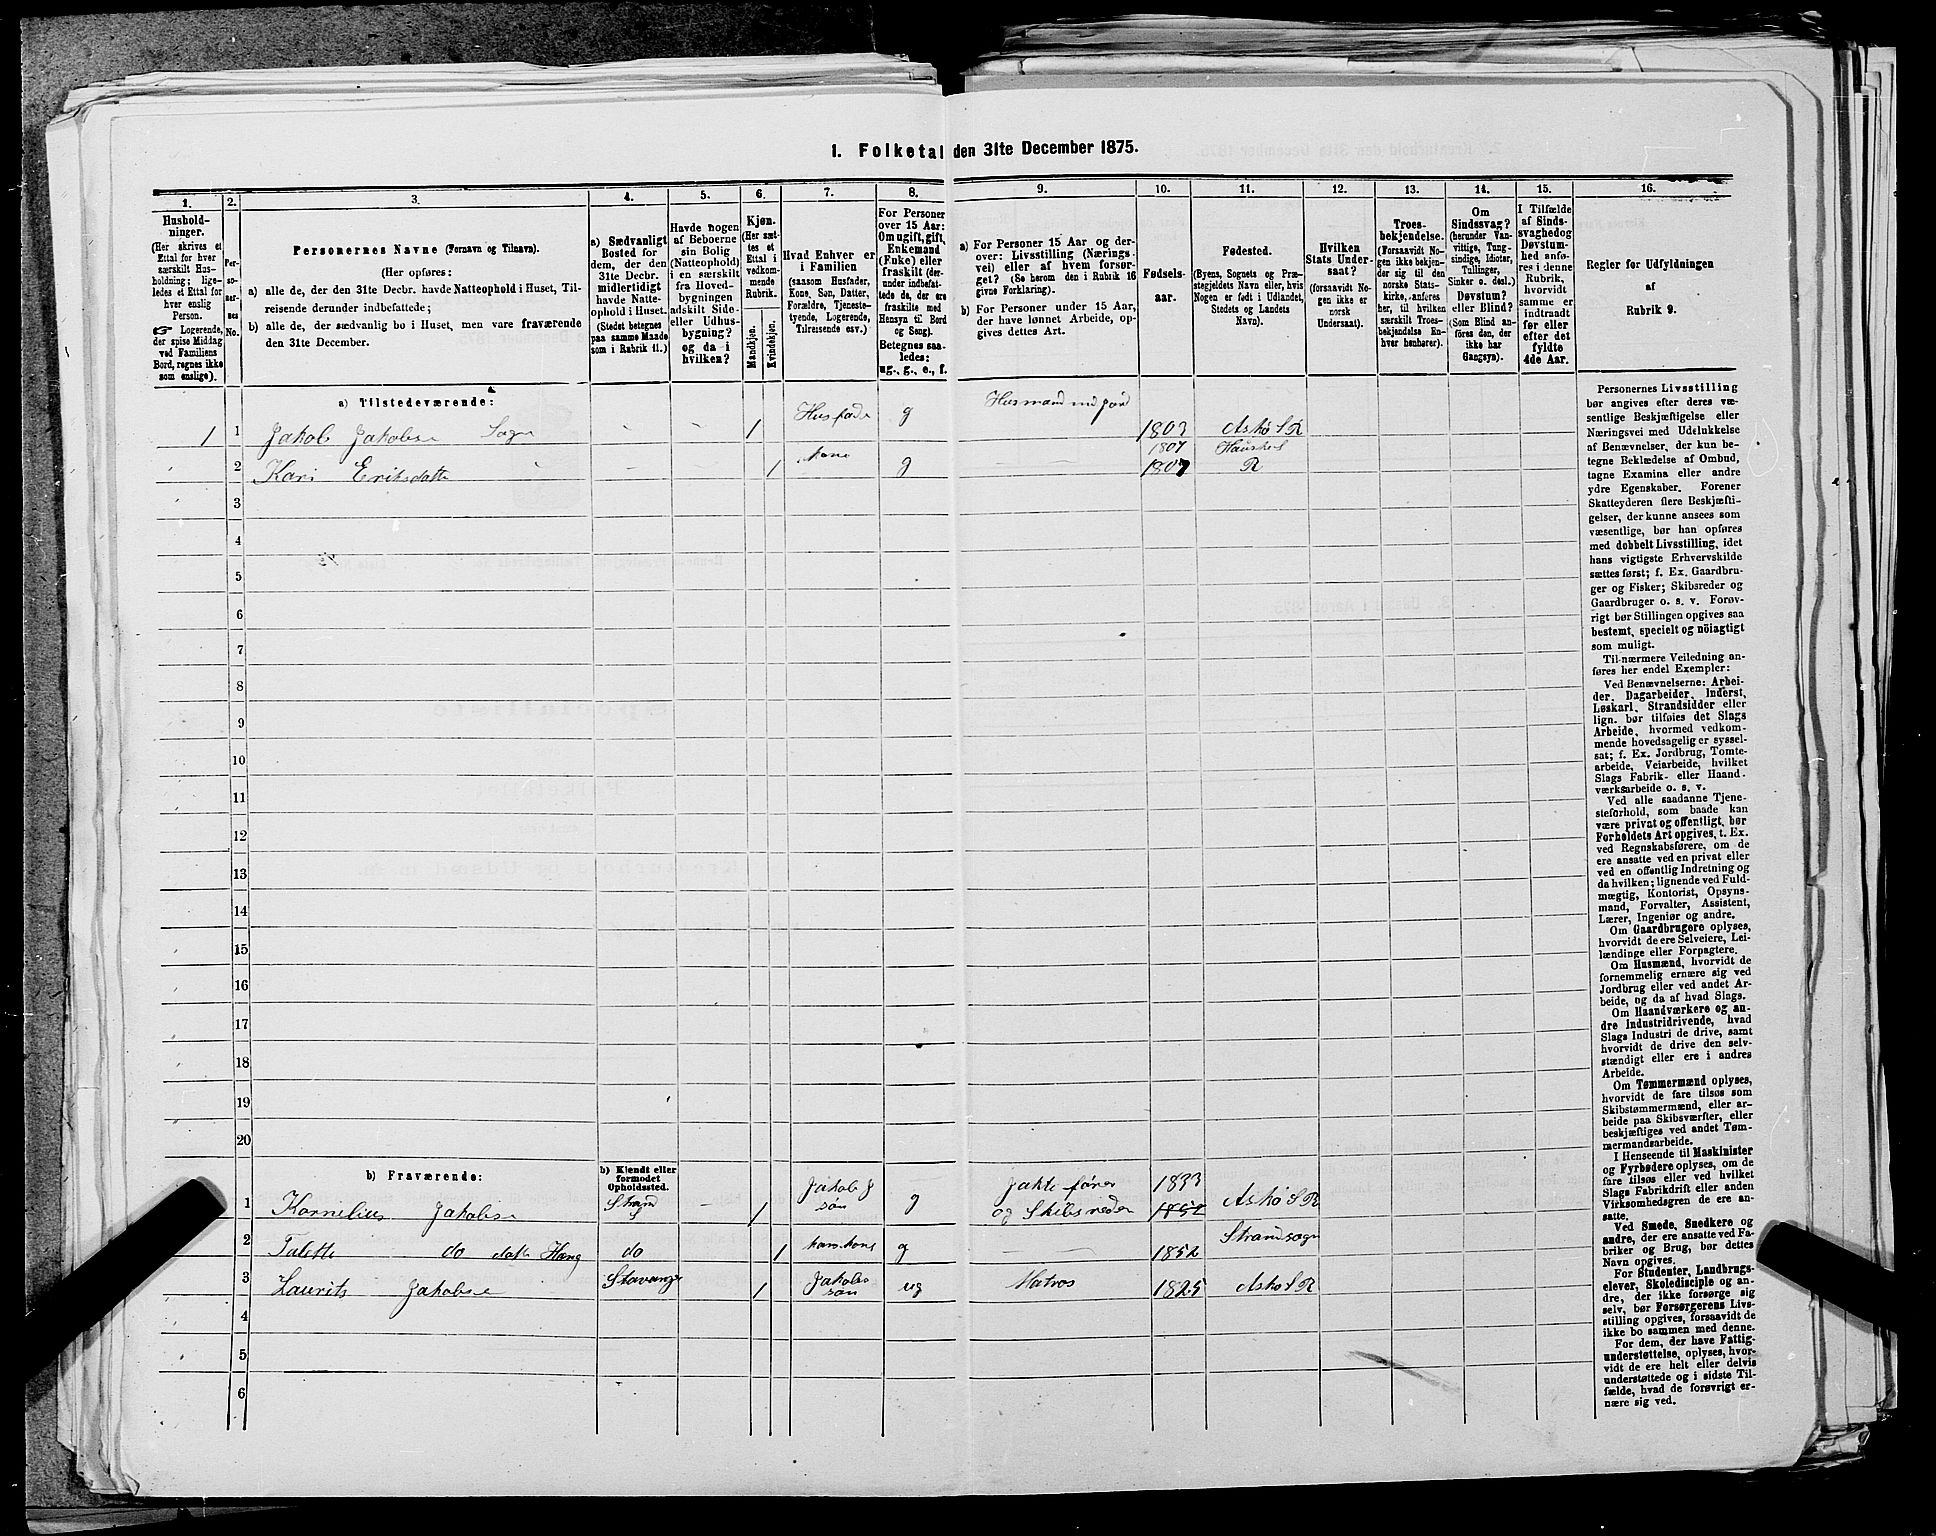 1. Folketal den 31te December 1875.
1.
2.
3.
4.
5.
6.
7.
8.
9.
10.
11.
12.
13.
14.
15.
16.
Hushold-
ninger.
(Her skrives et
Ettal for hver
særskilt Hus-
holdning; lige-
ledes et Ettal for
hver enslig
Person.
☞ Logerende,
der spise Middag
ved Familiens
Bord, regnes ikke
som enslige).
Per-
so-
ner-
nes
No.
Personernes Navne (Fornavn og Tilnavn).
(Her opføres:
a) alle de, der den 31te Decbr. havde Natteophold i Huset, Til-
reisende derunder indbefattede;
b) alle de, der sædvanlig bo i Huset, men vare fraværende
den 31te December.
a) Sædvanligt
Bosted for
dem, der den
31te Decbr.
midlertidigt
havde Natte-
ophold i Huset.
(Stedet betegnes
paa samme Maade
som i Rubrik 11.)
Havde nogen
af Beboerne
sin Bolig
(Natteophold)
i en særskilt
fra Hoved-
bygningen
adskilt Side-
eller Udhus-
bygning?
og da i
hvilken?
Kjøn.
(Her sæt-
tes et
Ettal i
vedkom-
mende
Rubrik.
Mandkjøn.
Kvindekjøn.
Hvad Enhver er
i Familien
(saasom Husfader,
Kone, Søn, Datter,
Forældre, Tjeneste-
tyende, Logerende,
Tilreisende osv.)
For Personer
over 15 Aar:
Om ugift, gift,
Enkemand
(Enke) eller
fraskilt (der-
under indbefat-
tede de, der ere
fraskilte med
Hensyn til Bord
og Seng).
Betegnes saa-
ledes:
ug., g., e., f.
a) For Personer 15 Aar og der-
over: Livsstilling (Nærings-
vei) eller af hvem forsør-
get? (Se herom den i Rubrik 16
givne Forklaring).
b) For Personer under 15 Aar,
der have lønnet Arbeide, op-
gives dettes Art.
Fødsels-
aar.
Fødested.
(Byens, Sognets og Præ-
stegjeldets Navn eller, hvis
Nogen er født i Udlandet,
Stedets og Landets
Navn).
Hvilken
Stats Under-
saat?
(forsaavidt No-
gen ikke er
norsk
Undersaat).
Troes-
bekjendelse.
(Forsaavidt No-
gen ikke bekjen-
der sig til den
norske Stats-
kirke, anføres
her, til hvilken
særskilt Troes-
bekjendelse En-
hver henhører).
Om
Sindssvag?
(herunder Van-
vittige, Tung-
sindige, Idioter,
Tullinger,
Sinker o. desl.)
Døvstum?
eller Blind?
(Som Blind an-
føres den, der
ikke har
Gangsyn).
I Tilfælde
af Sinds-
svaghedog
Døvstum-
hed anfø-
res i denne
Rubrik,
hvorvidt
samme er
indtraadt
før eller
efter det
fyldte
4de Aar.
Regler for Udfyldningen
af
Rubrik 9.
a) Tilstedeværende:
1 1 Jakob Jakobse Sogn 1 Husfade g Husmand med jord 1803 Askø S R
2 Kari Eriksdatte 1 kone g 1807 1807 R
3
4
5
6
7
8
9
10
11
12
13
14
15
16
17
18
19
20
b) Fraværende:
b) Kjendt eller
formodet
Opholdssted.
1 Kornelius Jakobse Strand S 1 Jakobs J søn g Jaktefører og Skibsreder 1833 Askø S R
2 Talette do datte Haug do 1 hans kone g 1852 Strandsogn
3 Laurits Jakobse Stavange 1 Jakobs søn ug Matros 1825 Askø S R
4
5
6
Personernes Livsstilling
bør angives efter deres væ-
sentlige Beskjæftigelse eller
Næringsvei med Udelukkelse
af Benævnelser, der kun be-
tegne Beklædelse af Ombud,
tagne Examina eller andre
ydre Egenskaber. Forener
Skatteyderen flere Beskjæfti-
gelser, der kunne ansees som
væsentlige, bør han opføres
med dobbelt Livsstilling, idet
hans vigtigste Erhvervskilde
sættes først; f. Ex. Gaardbru-
ger og Fisker; Skibsreder og
Gaardbruger o. s. v. Forøv-
rigt bør Stillingen opgives saa
bestemt, specielt og nöiagtigt
som muligt.
Til nærmere Veiledning an-
føres her endel Exempler:
Ved Benævnelserne: Arbei-
der, Dagarbeider, Inderst,
Løskarl, Strandsidder eller
lign. bør tilføies det Slags
Arbeide, hvormed vedkom-
mende hovedsagelig er syssel-
sat; f. Ex. Jordbrug, Tomte-
arbeide, Veiarbeide, hvilket
Slags Fabrik- eller Haand-
værksarbeide o. s. v.
Ved alle saadanne Tjene-
steforhold, som baade kan
være privat og offentligt, bør
Forholdets Art opgives, t. Ex.
ved Regnskabsførere, om de
ere ansatte ved en privat eller
ved en offentlig Indretning og
da hvilken; lignende ved Fuld-
mægtig, Kontorist, Opsyns-
mand, Forvalter, Assistent,
Lærer, Ingeniør og andre.
Om Gaardbrugere oplyses,
hvorvidt de ere Selveiere, Lei-
lændinge eller Forpagtere.
Om Husmænd, hvorvidt de
fornemmelig ernære sig ved
Jordbrug eller ved andet Ar-
beide, og da af hvad Slags.
Om Haandværkere og an-
dre Industridrivende, hvad
Slags Industri de drive, samt
hvorvidt de drive den selv-
stændigt eller ere i andres
Arbeide.
Om Tømmermænd oplyses,
hvorvidt de fare tilsøs som
Skibstømmermænd, eller ar-
beide paa Skibsværfter, eller
beskjæftiges ved andet Tøm-
mermandsarbeide.
I Henseende til Maskinister
og Fyrbødere oplyses, om de
fare tilsøs eller ved hvilket
Slags Fabrikdrift eller anden
Virksomhedsgren de ere an-
satte.
Ved Smede, Snedkere og
andre, der ere ansatte ved Fa-
briker og Brug, bør dettes
Navn opgives.
For Studenter, Landbrugs-
elever, Skoledisciple og an-
dre, der ikke forsørge sig
selv, bør Forsørgerens Livs-
stilling opgives, forsaavidt de
ikke bo sammen med denne.
For dem, der have Fattig-
understøttelse, oplyses, hvor-
vidt de ere helt eller delvis
understøttede og i sidste Til-
fælde, hvad de forøvrigt er-
nære sig ved.